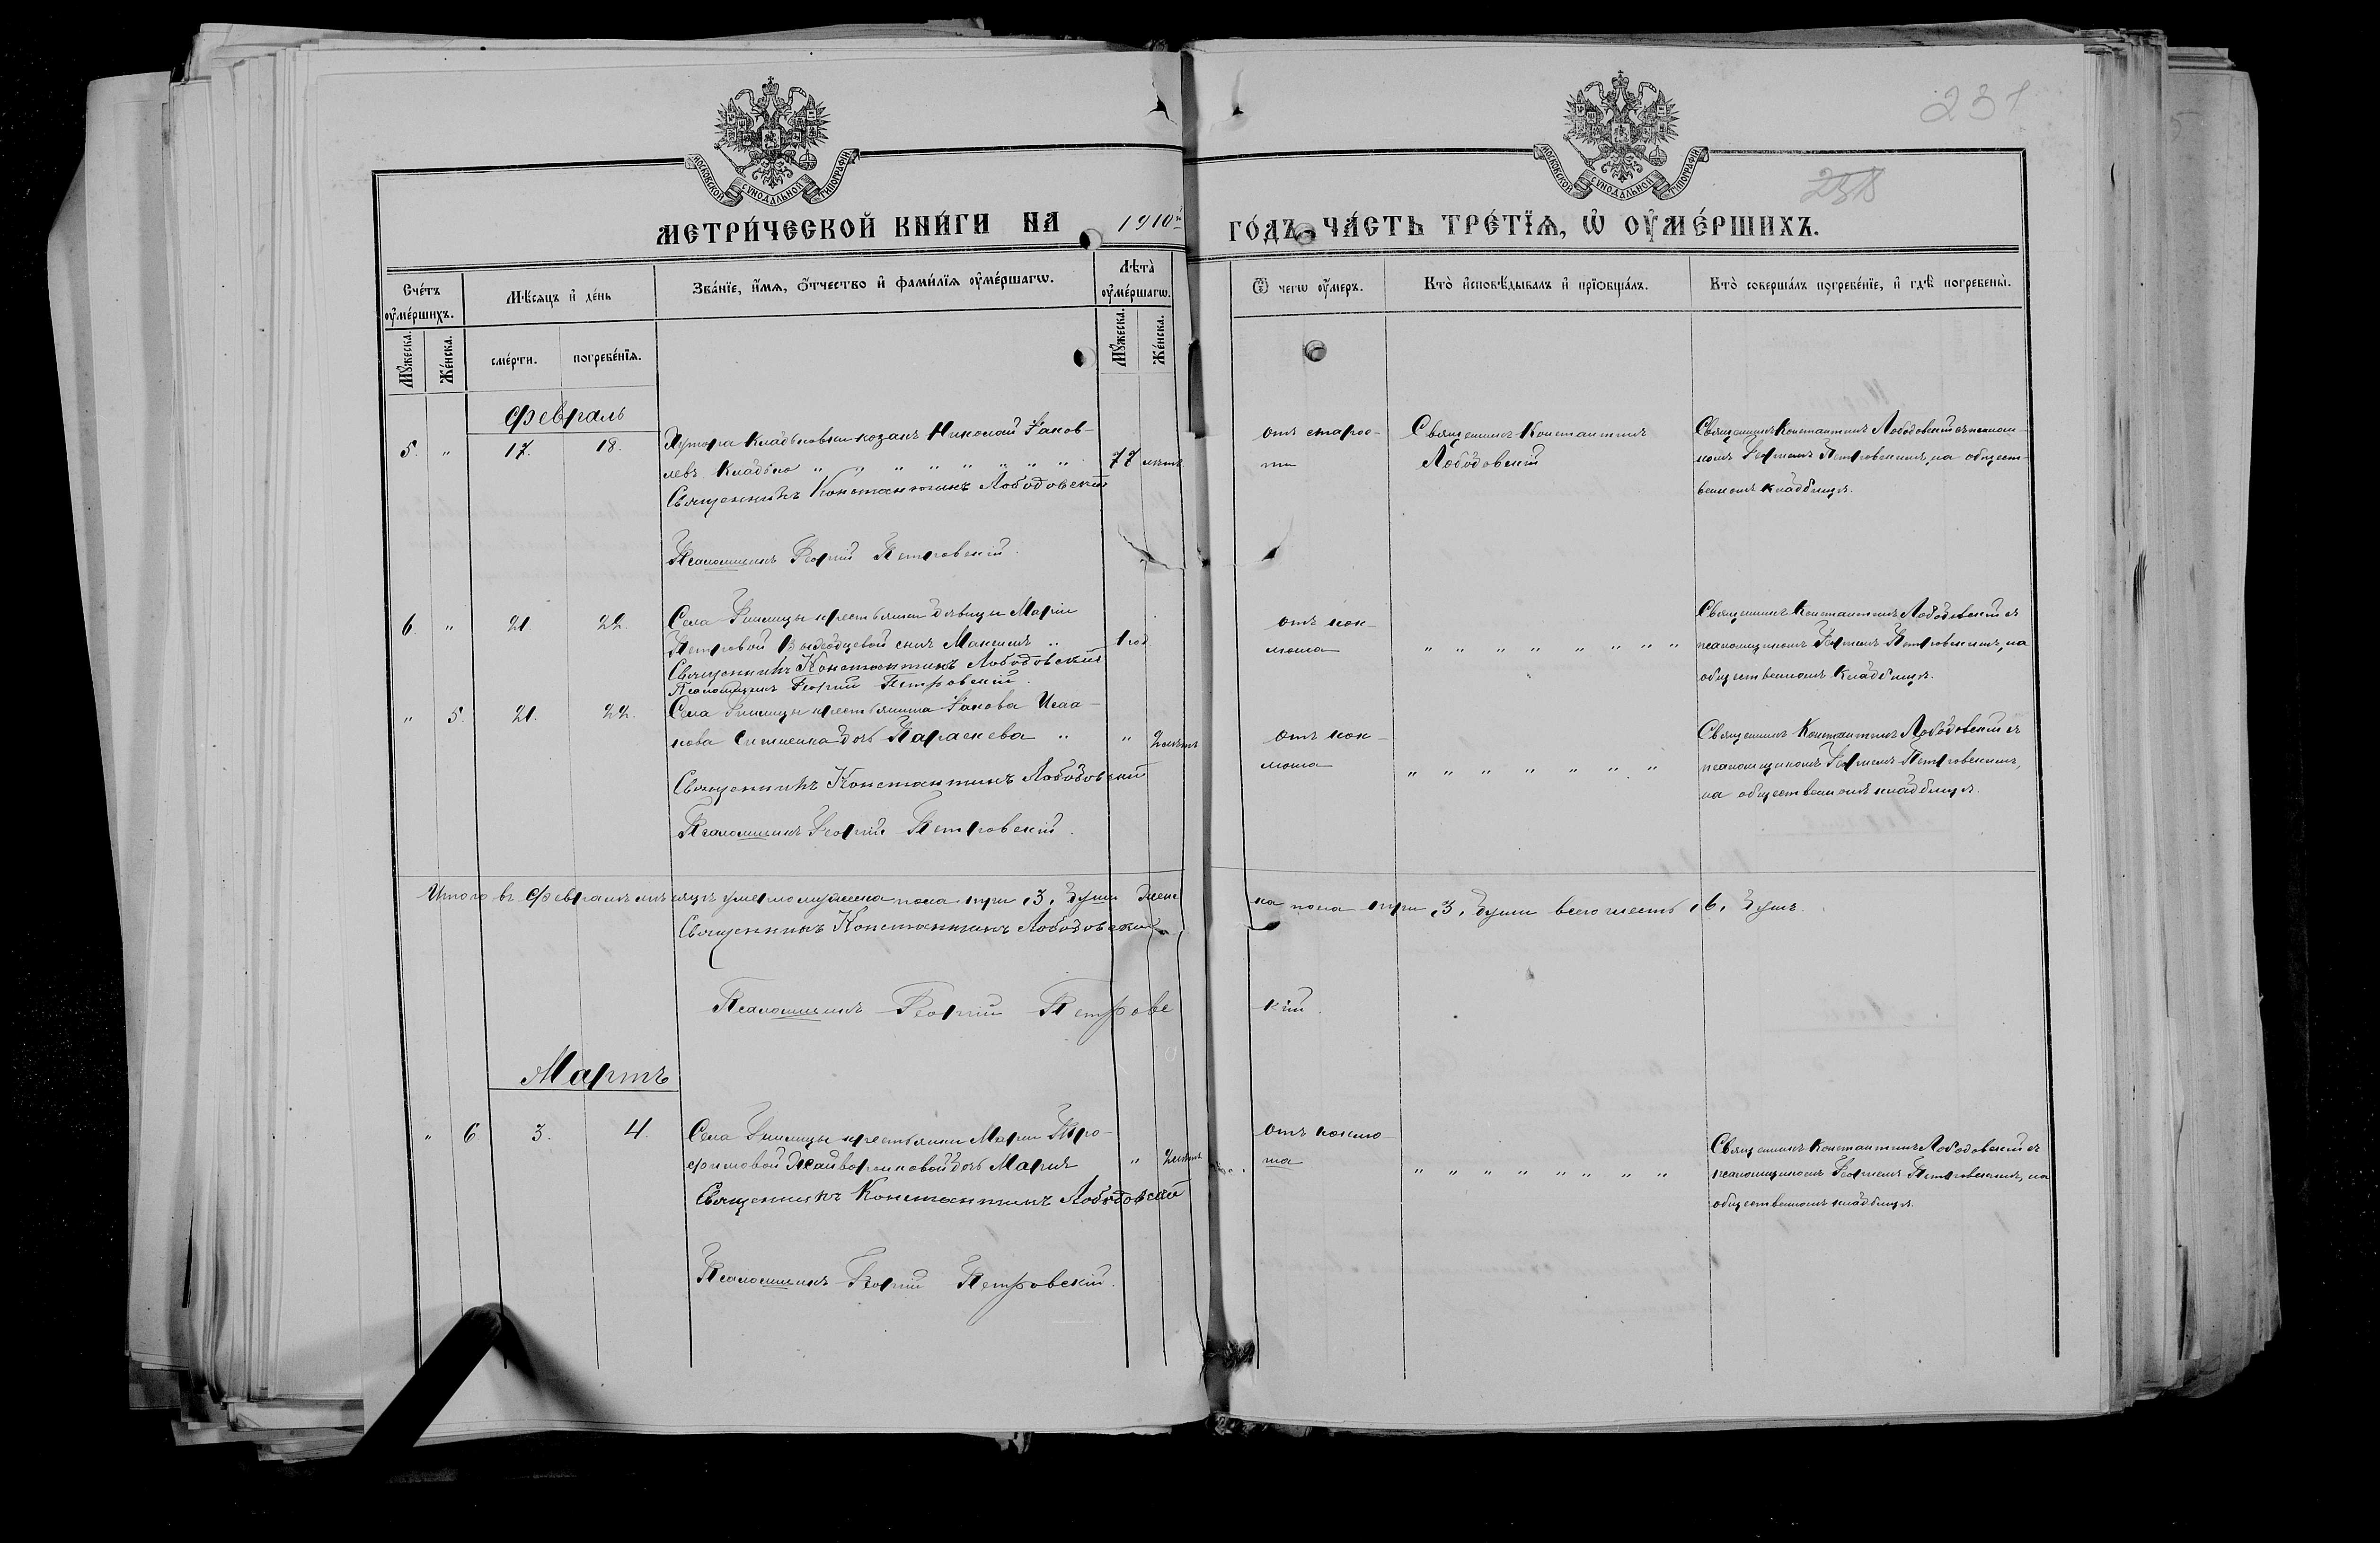 231
МОСКОВСКОЙ СѴНОДАЛЬНОЙ ТИПОГРАФІИ
МОСКОВСКОЙ СѴНОДАЛЬНОЙ ТИПОГРАФІИ
МЕТРИ́ЧЕСКОЙ КНИ́ГИ НА 1910й ГО́ДЪ, ЧА́СТЬ ТРЕ́ТЇѦ, Ѡ҆ ОУ҆МЕ́РШИХЪ.
Сче́тъ оу҆ме́ршихъ.
Мѣ́сѧцъ и҆ де́нь
Зва́нїе, и҆́мѧ, ѻ҆́тчество и҆ фами́лїѧ оу҆ме́ршагѡ.
Лѣта̀ оу҆ме́ршагѡ.
Ѿ чегѡ̀ оу҆́меръ.
Кто̀ и҆сповѣ́дывалъ и҆ прїѻбща́лъ.
Кто̀ соверша́лъ погребе́нїе, и҆ гдѣ̀ погребены̀.
Мꙋ́жеска.
Же́нска.
сме́рти.
погребе́нїѧ.
Мꙋ́жеска.
Же́нска.
Февраль
5. " 17. 18.
Хутора Кладьковки козакъ Николай Яков-
левъ Кладько " " " " " " " " 77 лѣтъ
Священникъ Константинъ Лободовскій
Псаломщикъ Георгій Петровскій.
отъ старос-
ти
Священникъ Константинъ
Лободовскій
Священникъ Константинъ Лободовскій съ псалом-
комъ Георгіемъ Петровскимъ, на общест-
венномъ кладбищѣ.
6. " 21 22.
Села крестьянки дѣвицы Маріи
Петровой сынъ Максимъ " 1 год.
Священникъ Константинъ Лободовскій
Псаломщикъ Георгій Петровскій.
отъ кок-
люша
" " " " " " " "
Священникъ Константинъ Лободовскій съ
псаломщикомъ Георгіемъ Петровскимъ, на
общественномъ кладбищѣ.
" 5. 21. 22.
Села крестьянина Якова Исаа-
кова дочь Параскева " " 2 лѣтъ
Священникъ Константинъ Лободовскій
Псаломщикъ Георгій Петровскій.
отъ кок-
люша
" " " " " " "
Священникъ Константинъ Лободовскій съ
псаломщикомъ Георгіемъ Петровскимъ,
на общественномъ кладбищѣ.
Итого въ Февралѣ мѣсяцѣ умерло мужеска пола три, 3, души женс ка пола три, 3, души всего шесть, 6, душъ.
Священникъ Константинъ Лободовскій
Псаломщикъ Георгій Петровс кій.
Мартъ
" 6 3. 4.
Села крестьянки Маріи Тро-
фимовой Жайворонковой дочь Марія " 2 лѣтъ
Священникъ Константинъ Лободовскій
Псаломщикъ Георгій Петровскій.
отъ коклю-
ша
" " " " " " " "
Священникъ Константинъ Лободовскій съ
псаломщикомъ Георгіемъ Петровскимъ, на
общественномъ кладбищѣ.